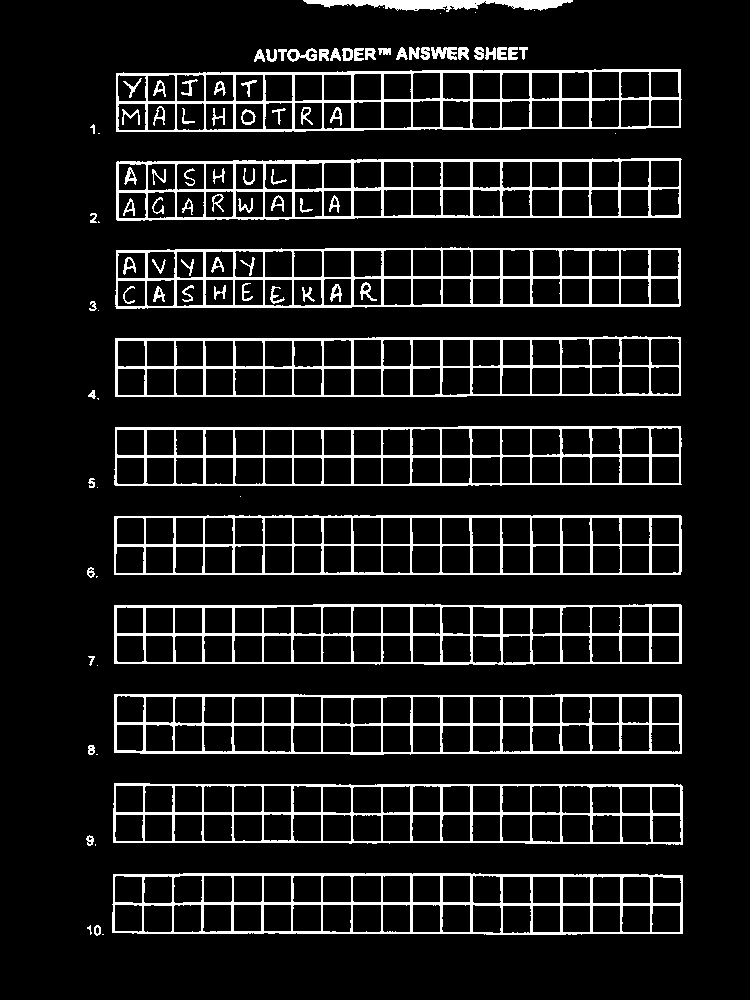 AUTO-GRADER™ ANSWER SHEET
YAJAT
MALHOTRA
1.
ANSHUL
AGARWALA
2.
AVYAY
CASHEEKAR
3.
4.
5.
6.
7.
8.
9.
10.